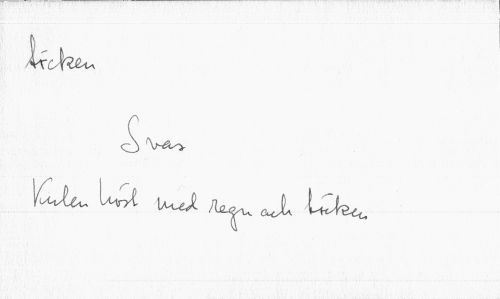 töcken
Svar
Kulen höst med regn och töcken